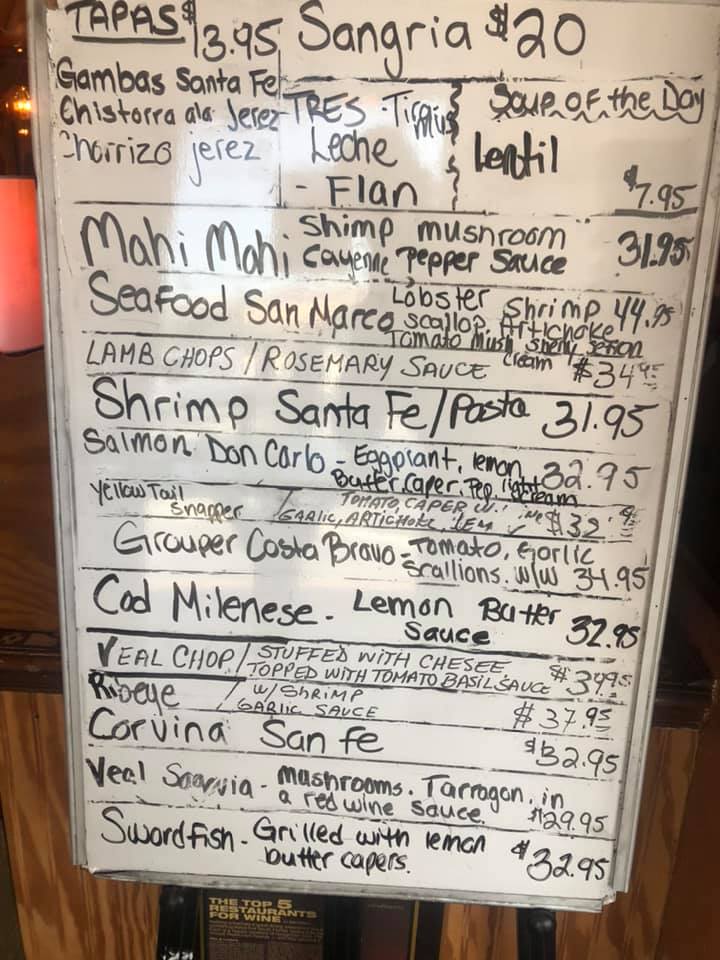 TAPAS $13.95 Sangria $20
Gambas Santa Fe
Chistorra ala Jerez
Chorrizo jerez
TRES
Leche
- Flan
Soup of the Day
Lentil
$7.95
Mahi Mahi Shimp mushroom
Cayenne Pepper Sauce 31.95
Seafood San Marco Lobster Shrimp 44.95
Scallop, Artichoke
Tomato Mush Sherry
Cream
LAMB CHOPS / ROSEMARY SAUCE $34.95
Shrimp Santa Fe/Pasta 31.95
Salmon Don Carlo - Eggplant, lemon, 32.95
Butter, Caper, Pep. light Cream
Yellow Tail
Snapper / TOMATO, CAPER
GARLIC, ARTICHOKE $32
Grouper Costa Bravo - Tomato, Garlic
Scallions. w/w 34.95
Cod Milenese - Lemon Butter
Sauce 32.95
VEAL CHOP / STUFFED WITH CHESEE
TOPPED WITH TOMATO BASIL SAUCE $34.95
Ribeye / W/ SHRIMP
GARLIC SAUCE $37.95
Corvina San Fe $32.95
Veal - mushrooms. Tarragon, in
a red wine sauce. $29.95
Swordfish - Grilled with lemon
butter capers. $32.95
THE TOP 5
RESTAURANTS
FOR WINE